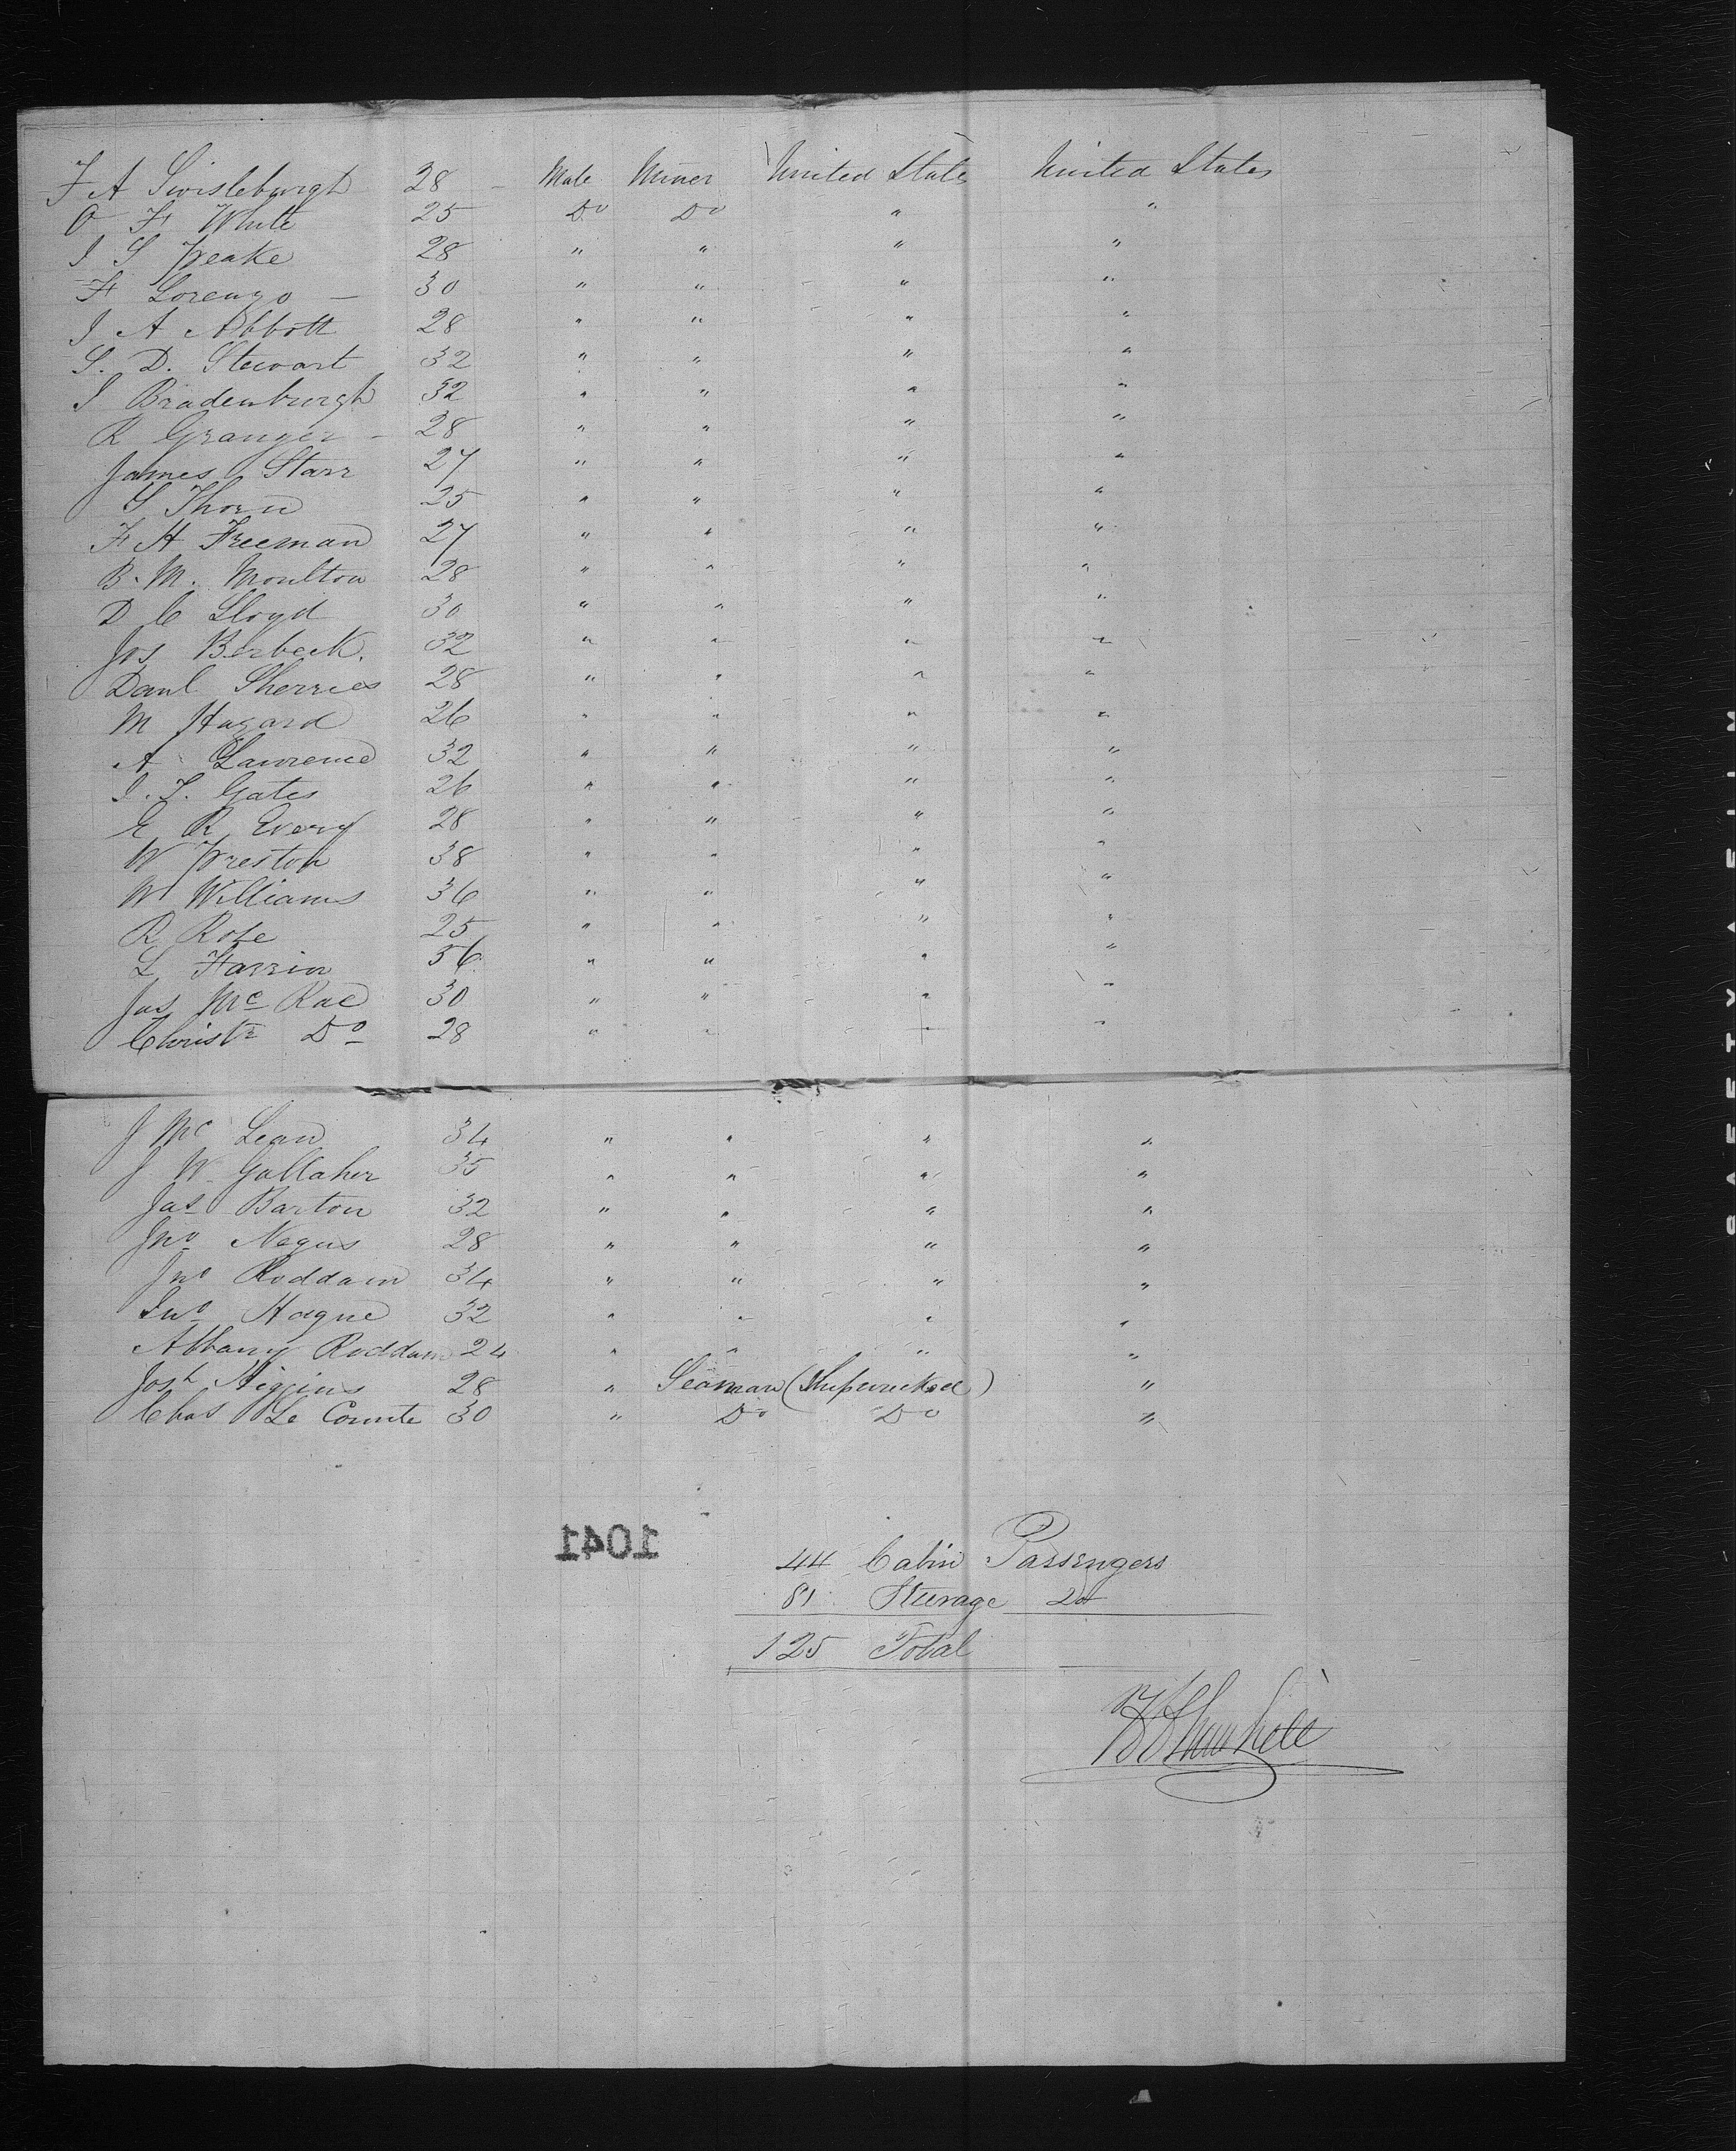 F A Swisleburgh 28 - Male Miner United States United States
O F White 25 Do Do " "
J S Peake 28 " " " "
F Lorenzo - 30 " " " "
J A Abbott 28 " " " "
S. D. Stewart 32 " " " "
J Bradenburgh 32 " " " "
R Granger - 28 " " " "
James Starr 27 " " " "
S Thorn 25 " " " "
F H Freeman 27 " " " "
B. M. Moulton 28 " " " "
D C Lloyd 30 " " " "
Jos Berbeck. 32 " " " "
Danl Sherries 28 " " " "
M Hagard 26 " " " "
A Lawrence 32 " " " "
J. T. Gates 26 " " " "
E R Every 28 " " " "
W Preston 38 " " " "
W Williams 36 " " " "
R Rose 25 " " " "
L Farrin 36 " " " "
Jas McRae 30 " " " "
Christr Do 28 " " " "
J Mc Lean 34 " " " "
J W Gallaher 35 " " " "
Jas Barton 32 " " " "
Jno Negus 28 " " " "
Jno Roddam 34 " " " "
Jno Hague 32 " " " "
Albany Roddam 24 " " " "
Josh Higgins 28 " Seaman (Shipwrecked) "
Chas Le Counte 30 " Do Do "
1041
44 Cabin Passengers
81 Steerage Do
125 Total